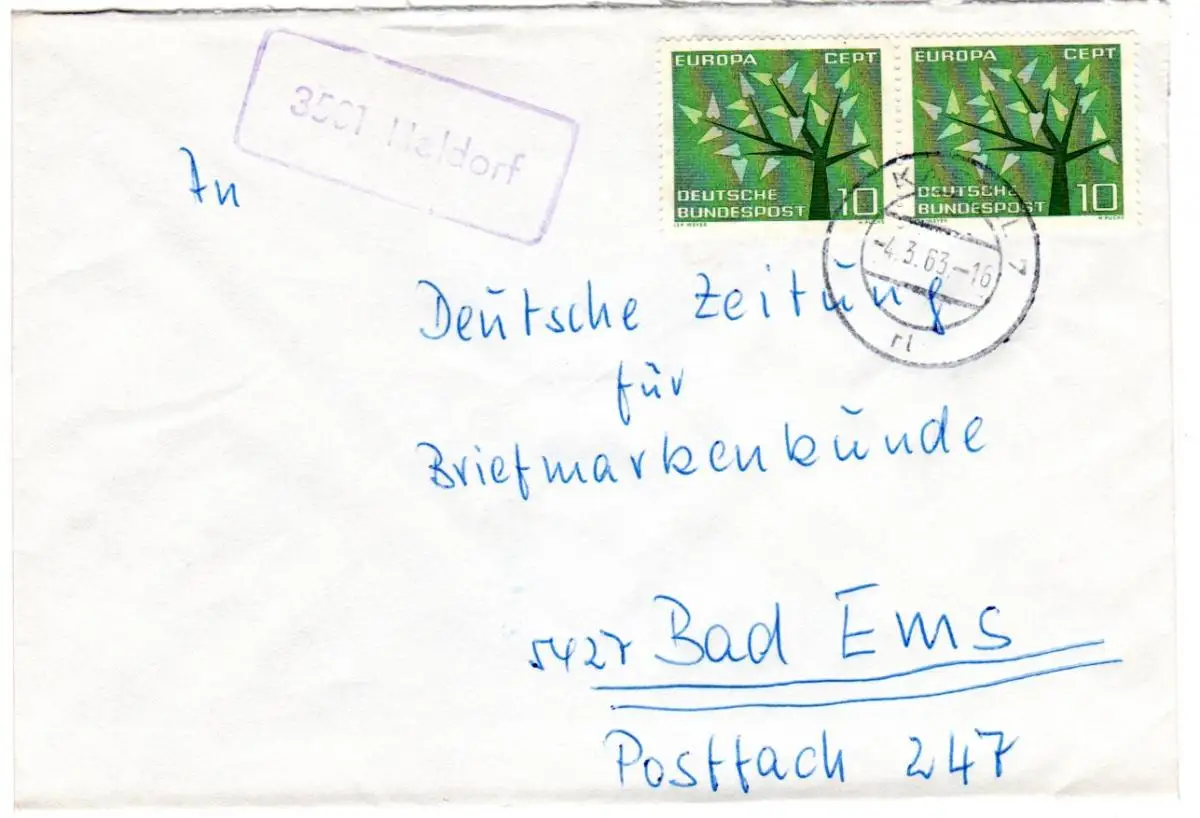 3501
EUROPA CEPT
DEUTSCHE
BUNDESPOST 10
EUROPA CEPT
DEUTSCHE
BUNDESPOST 10
-4.3.63.-16
7
rl
An
Deutsche Zeitung
für
Briefmarkenkunde
5427 Bad Ems
Postfach 247